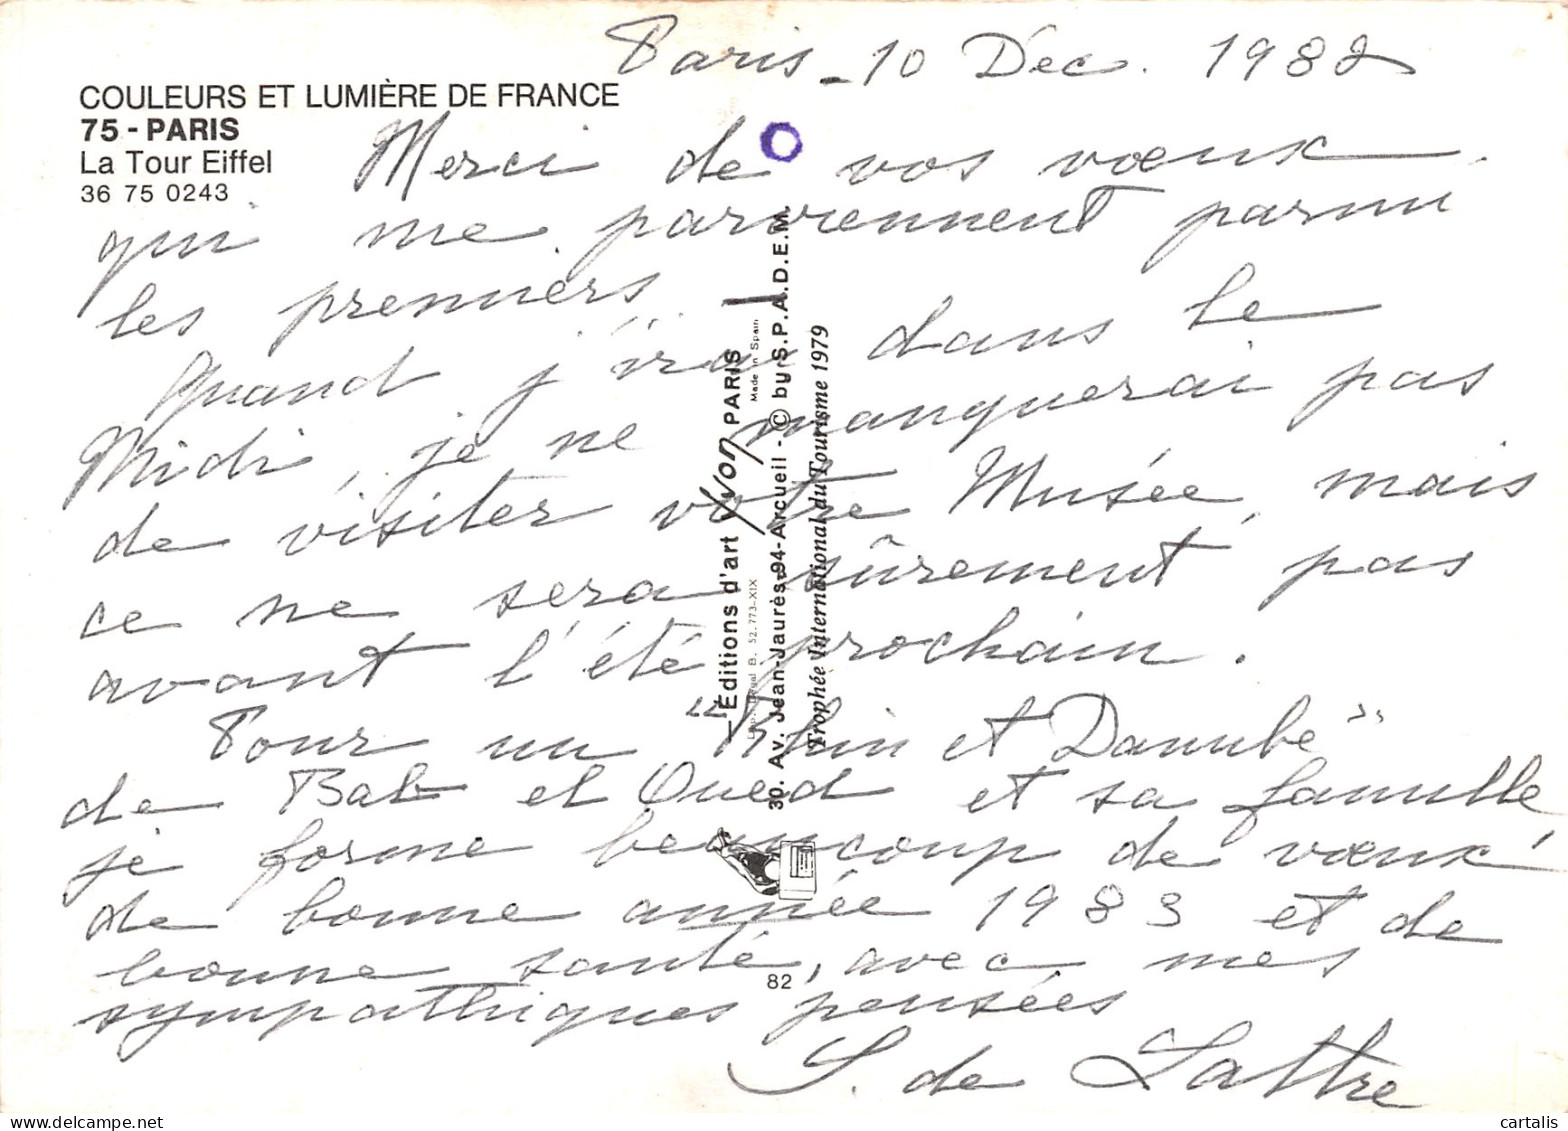 Paris - 10 Déc. 1982
COULEURS ET LUMIÈRE DE FRANCE
75 - PARIS
La Tour Eiffel
36 75 0243
Merci de vos vœux
qui me parviennent parmi
les premiers.
Quand j'irai dans le
Midi, je ne manquerai pas
de visiter votre Musée, mais
ce ne sera sûrement pas
avant l'été prochain.
Pour un "Rhin et Danube"
de Bab el Oued et sa famille
je forme beaucoup de vœux
de bonne année 1983 et de
bonne santé, avec mes
sympathiques pensées
S. de Lattre
Éditions d'art Yvon PARIS
Made in Spain
30, Av. Jean-Jaurès-94-Arcueil - © by S.P.A.D.E.M.
Trophée International du Tourisme 1979
82
cartalis